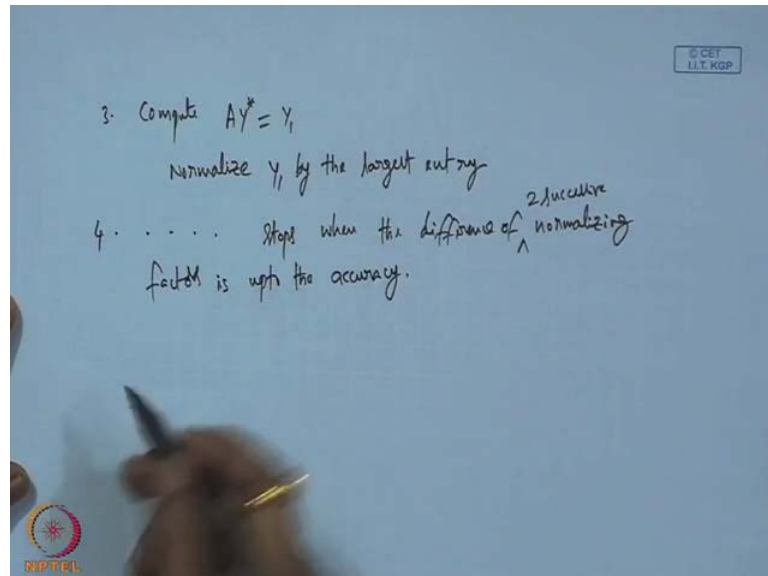 © CET
I.I.T. KGP
3. Compute AY* = Y₁
Normalize Y₁ by the largest entry
4. . . . . . Stops when the difference of ‸ 2 successive normalizing
factors is upto the accuracy.
NPTEL